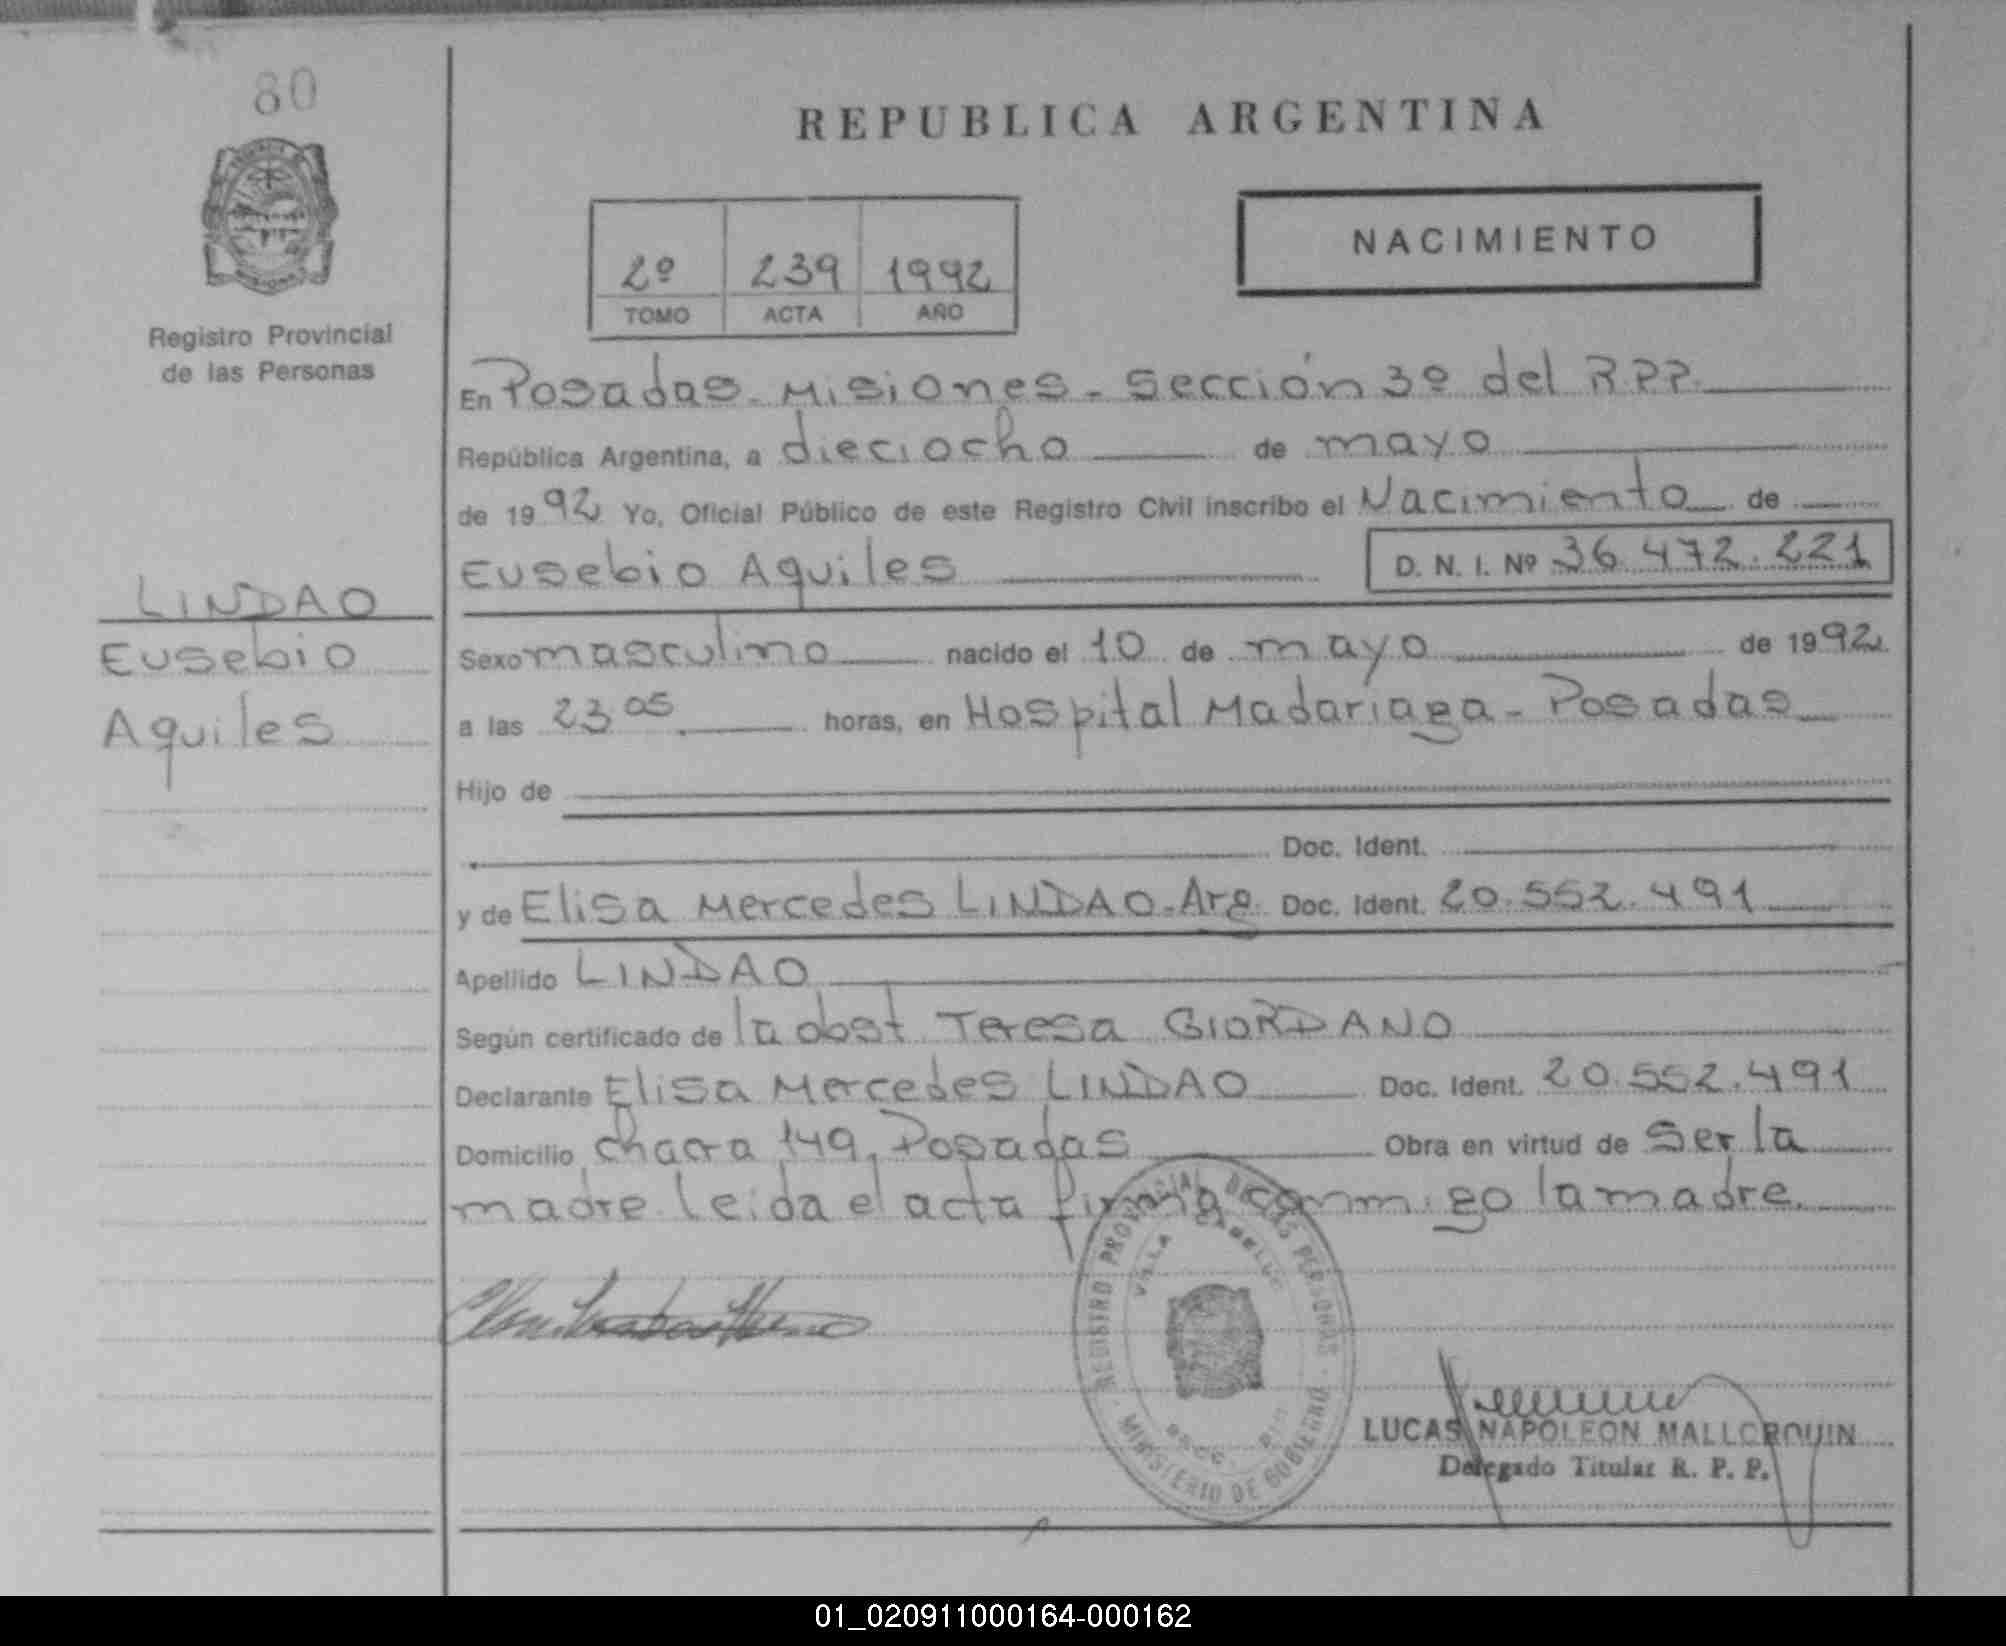 80
REPUBLICA ARGENTINA
NACIMIENTO
2º 239 1992
TOMO ACTA AÑO
Registro Provincial
de las Personas
En Posadas - Misiones - Sección 3º del R.P.P.
República Argentina, a dieciocho de mayo
de 1992 Yo, Oficial Público de este Registro Civil inscribo el Nacimiento de
Eusebio Aquiles D. N. I. Nº 36.472.221
LINDAO
Eusebio
Aquiles
Sexo masculino nacido el 10 de mayo de 1992
a las 23 05 horas, en Hospital Madariaga - Posadas
Hijo de
Doc. Ident.
y de Elisa Mercedes LINDAO - Arg. Doc. Ident. 20.552.491
Apellido LINDAO
Según certificado de la obst Teresa GIORDANO
Declarante Elisa Mercedes LINDAO Doc. Ident. 20.552.491
Domicilio chacra 149, Posadas Obra en virtud de ser la
madre leida el acta firma conmigo la madre.
REGISTRO PROVINCIAL DE LAS PERSONAS
VILLA CABELLO
MINISTERIO DE GOBIERNO
LUCAS NAPOLEON MALLORQUIN
Delegado Titular R. P. P.
01_020911000164-000162